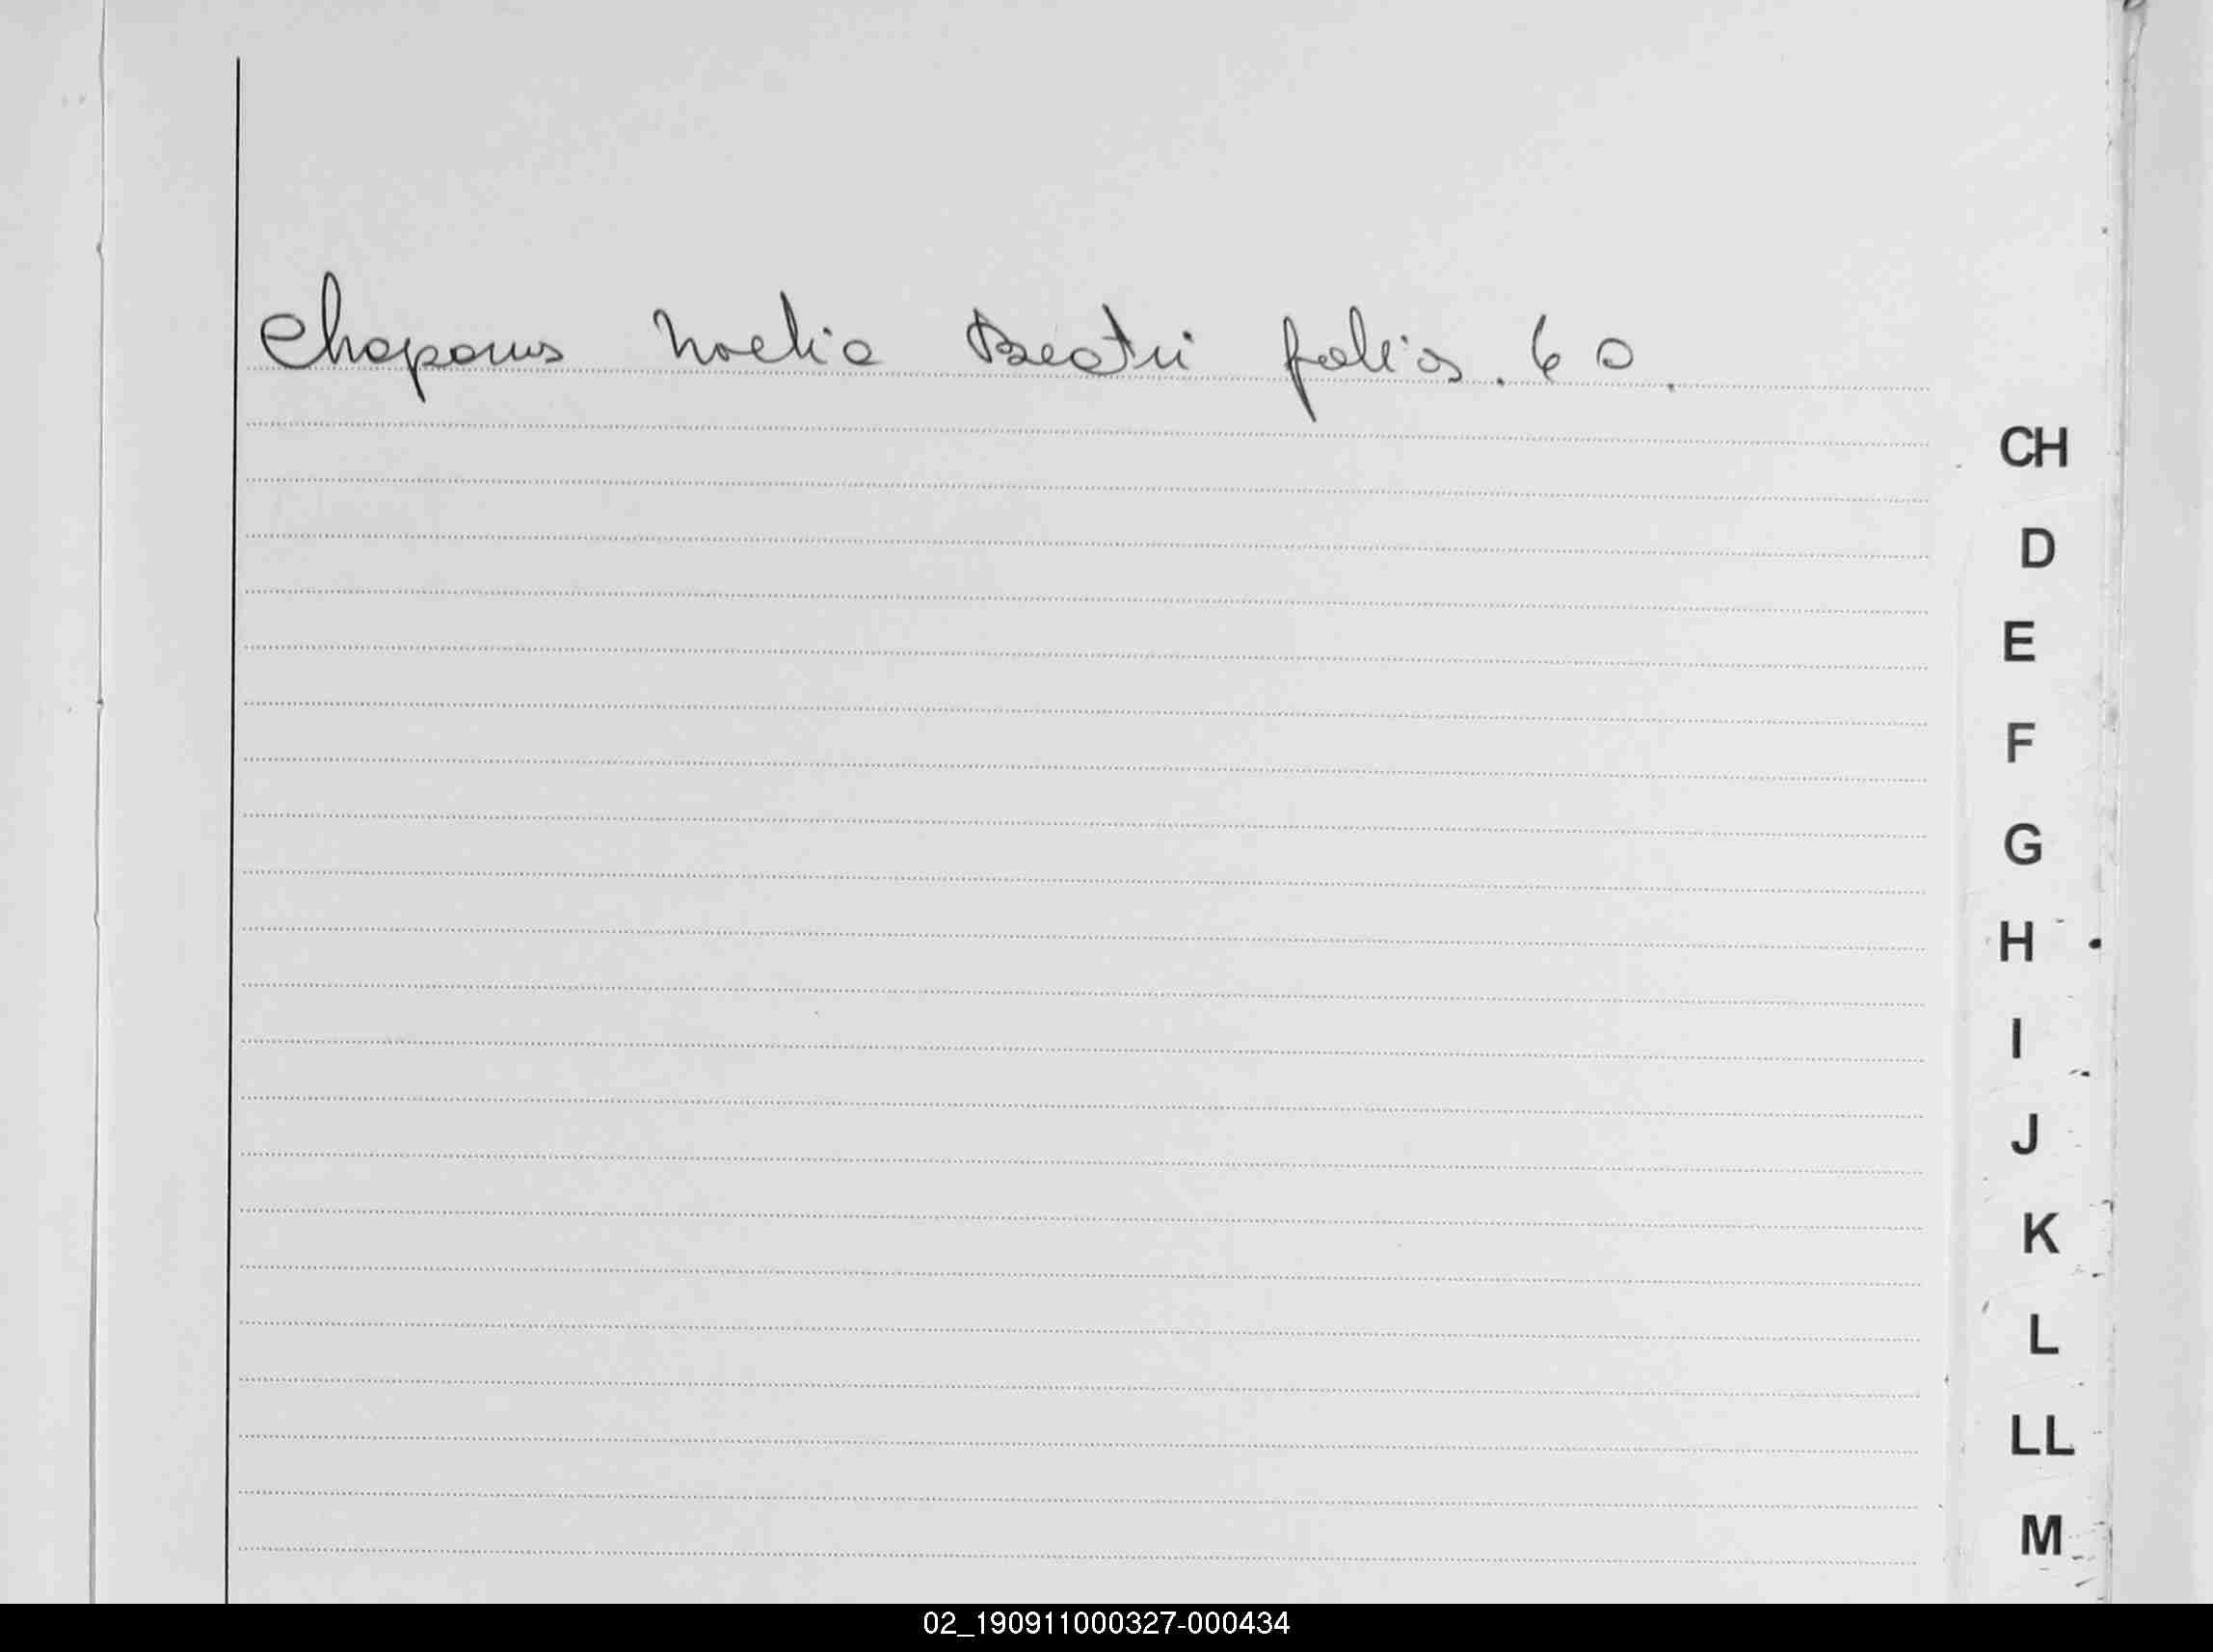 Noelia Beatri folios. 60.
CH
D
E
F
G
H
I
J
K
L
LL
M
02_190911000327-000434